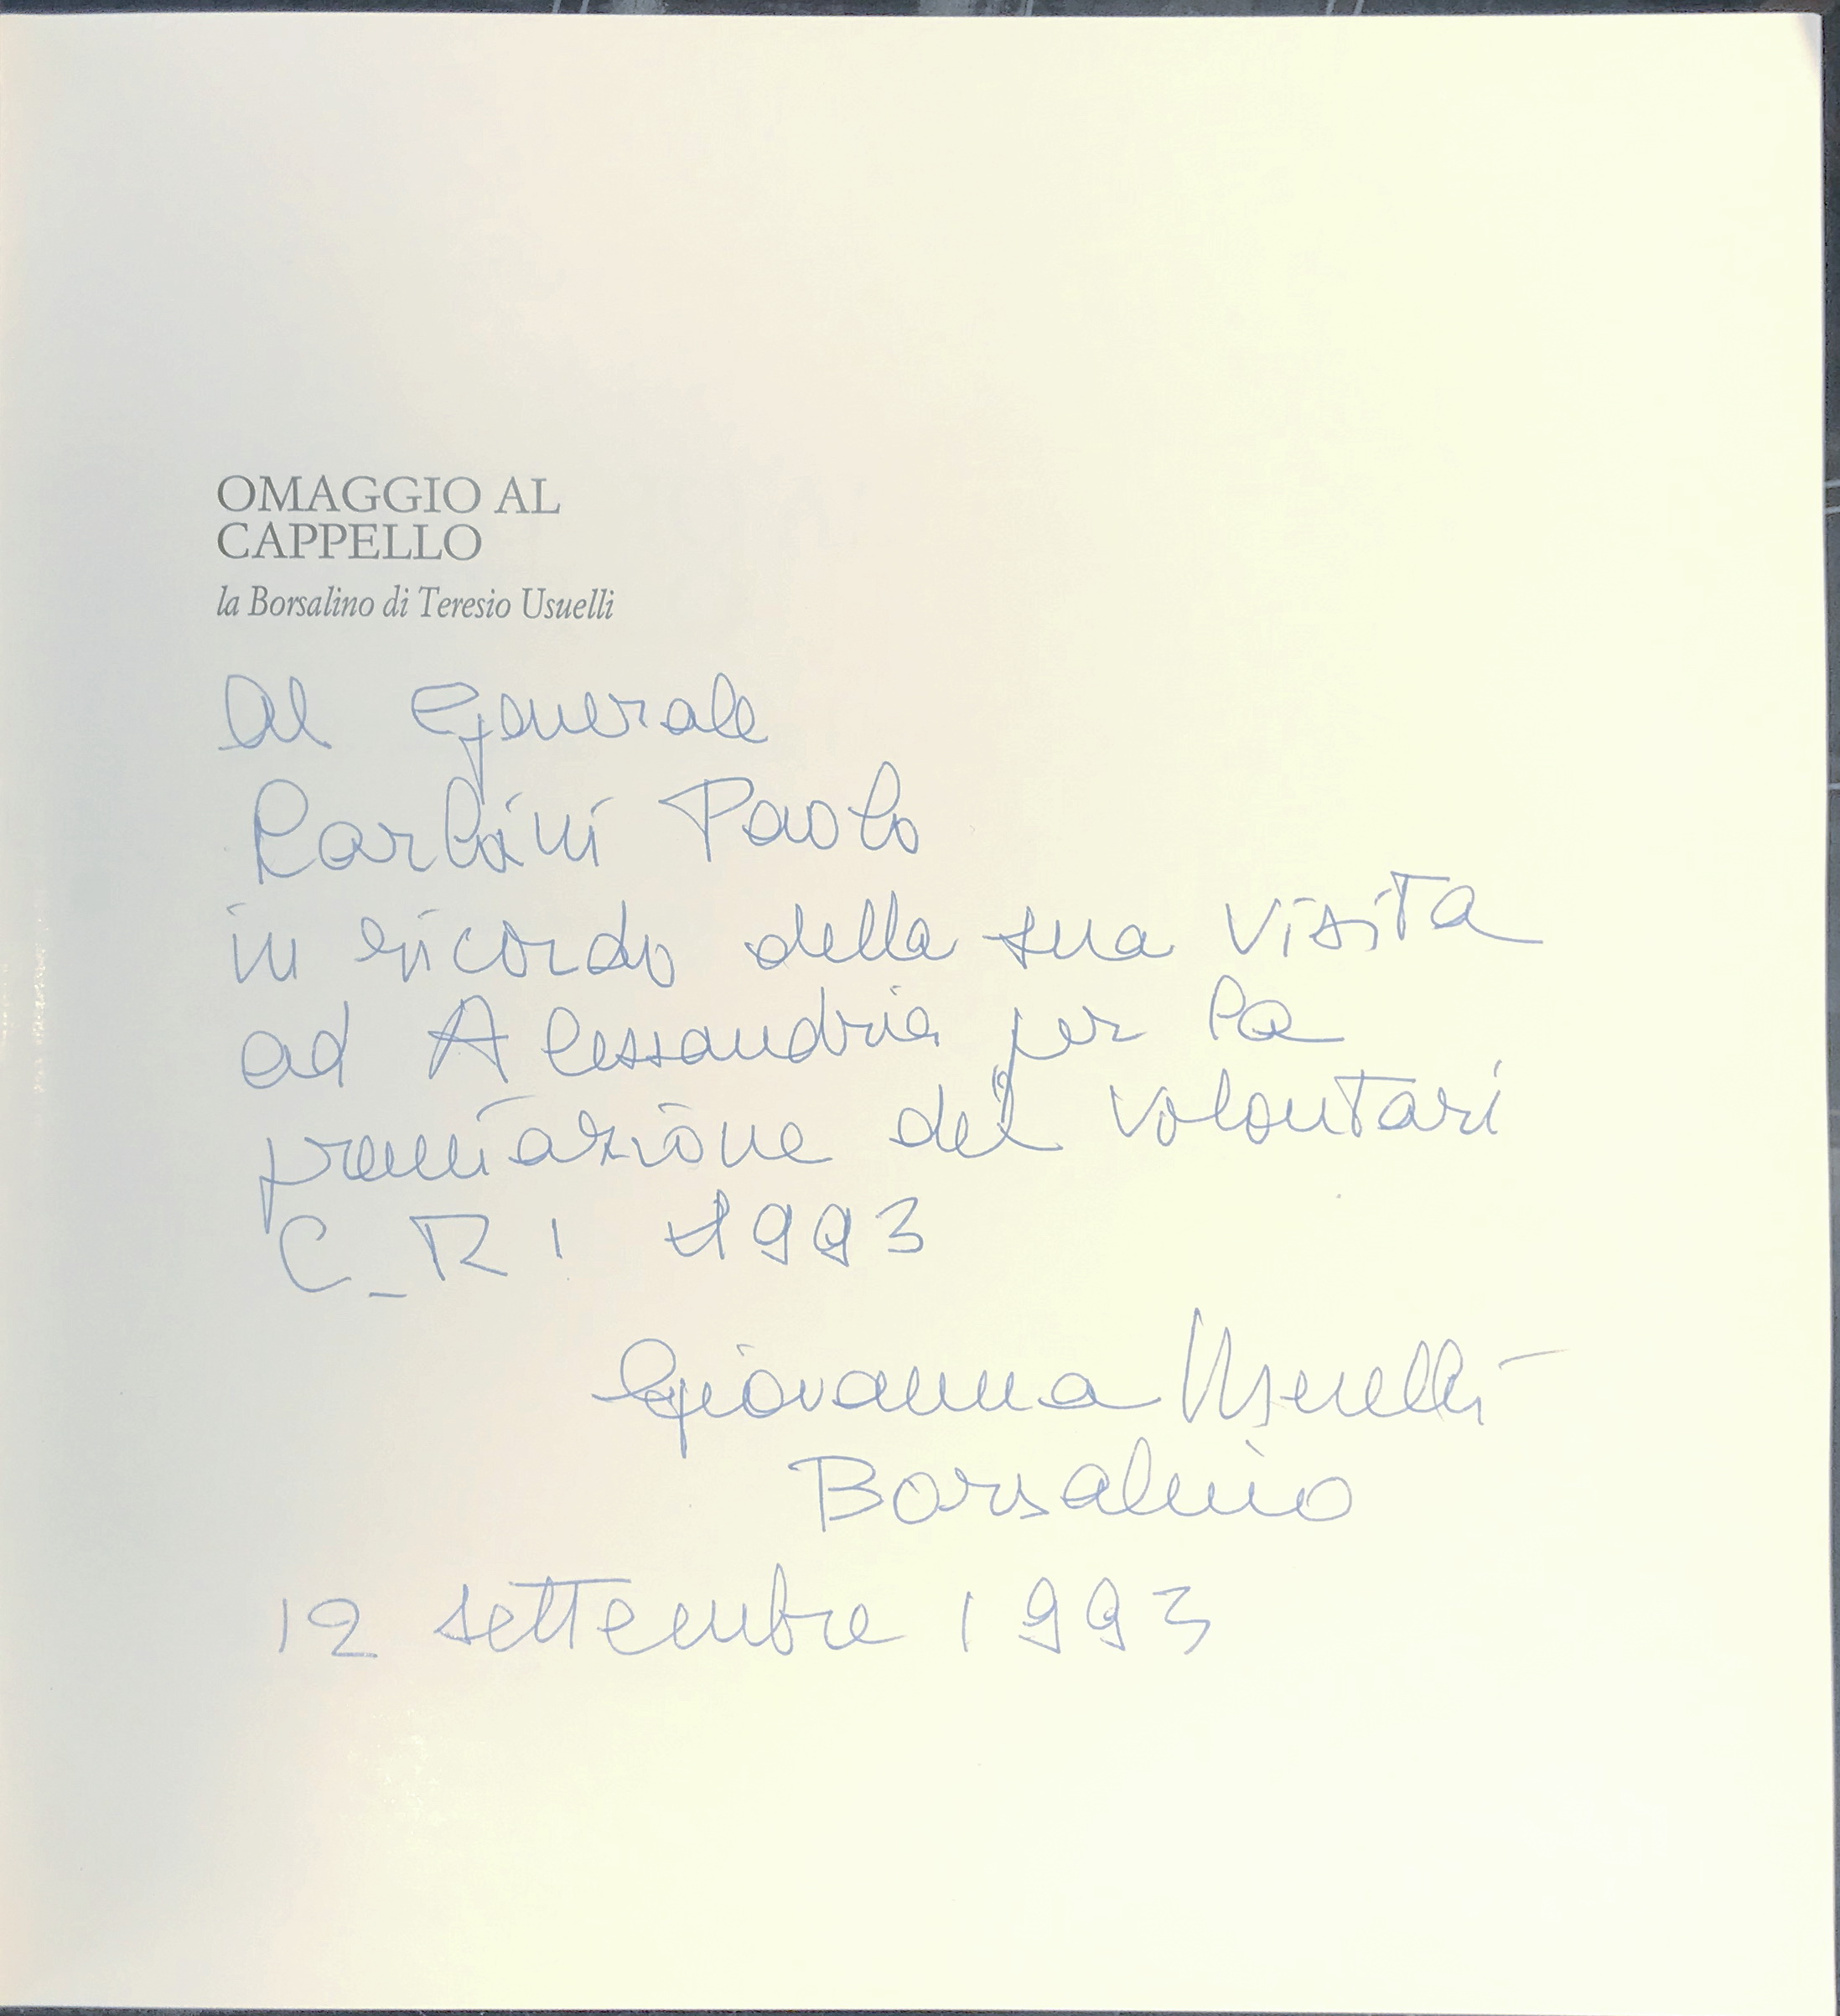 OMAGGIO AL
CAPPELLO
la Borsalino di Teresio Usuelli
Al Generale
Paolo
in ricordo della sua visita
ad Alessandria per la
premiazione dei volontari
C_RI 1993
Giovanna Usuelli
Borsalino
12 settembre 1993